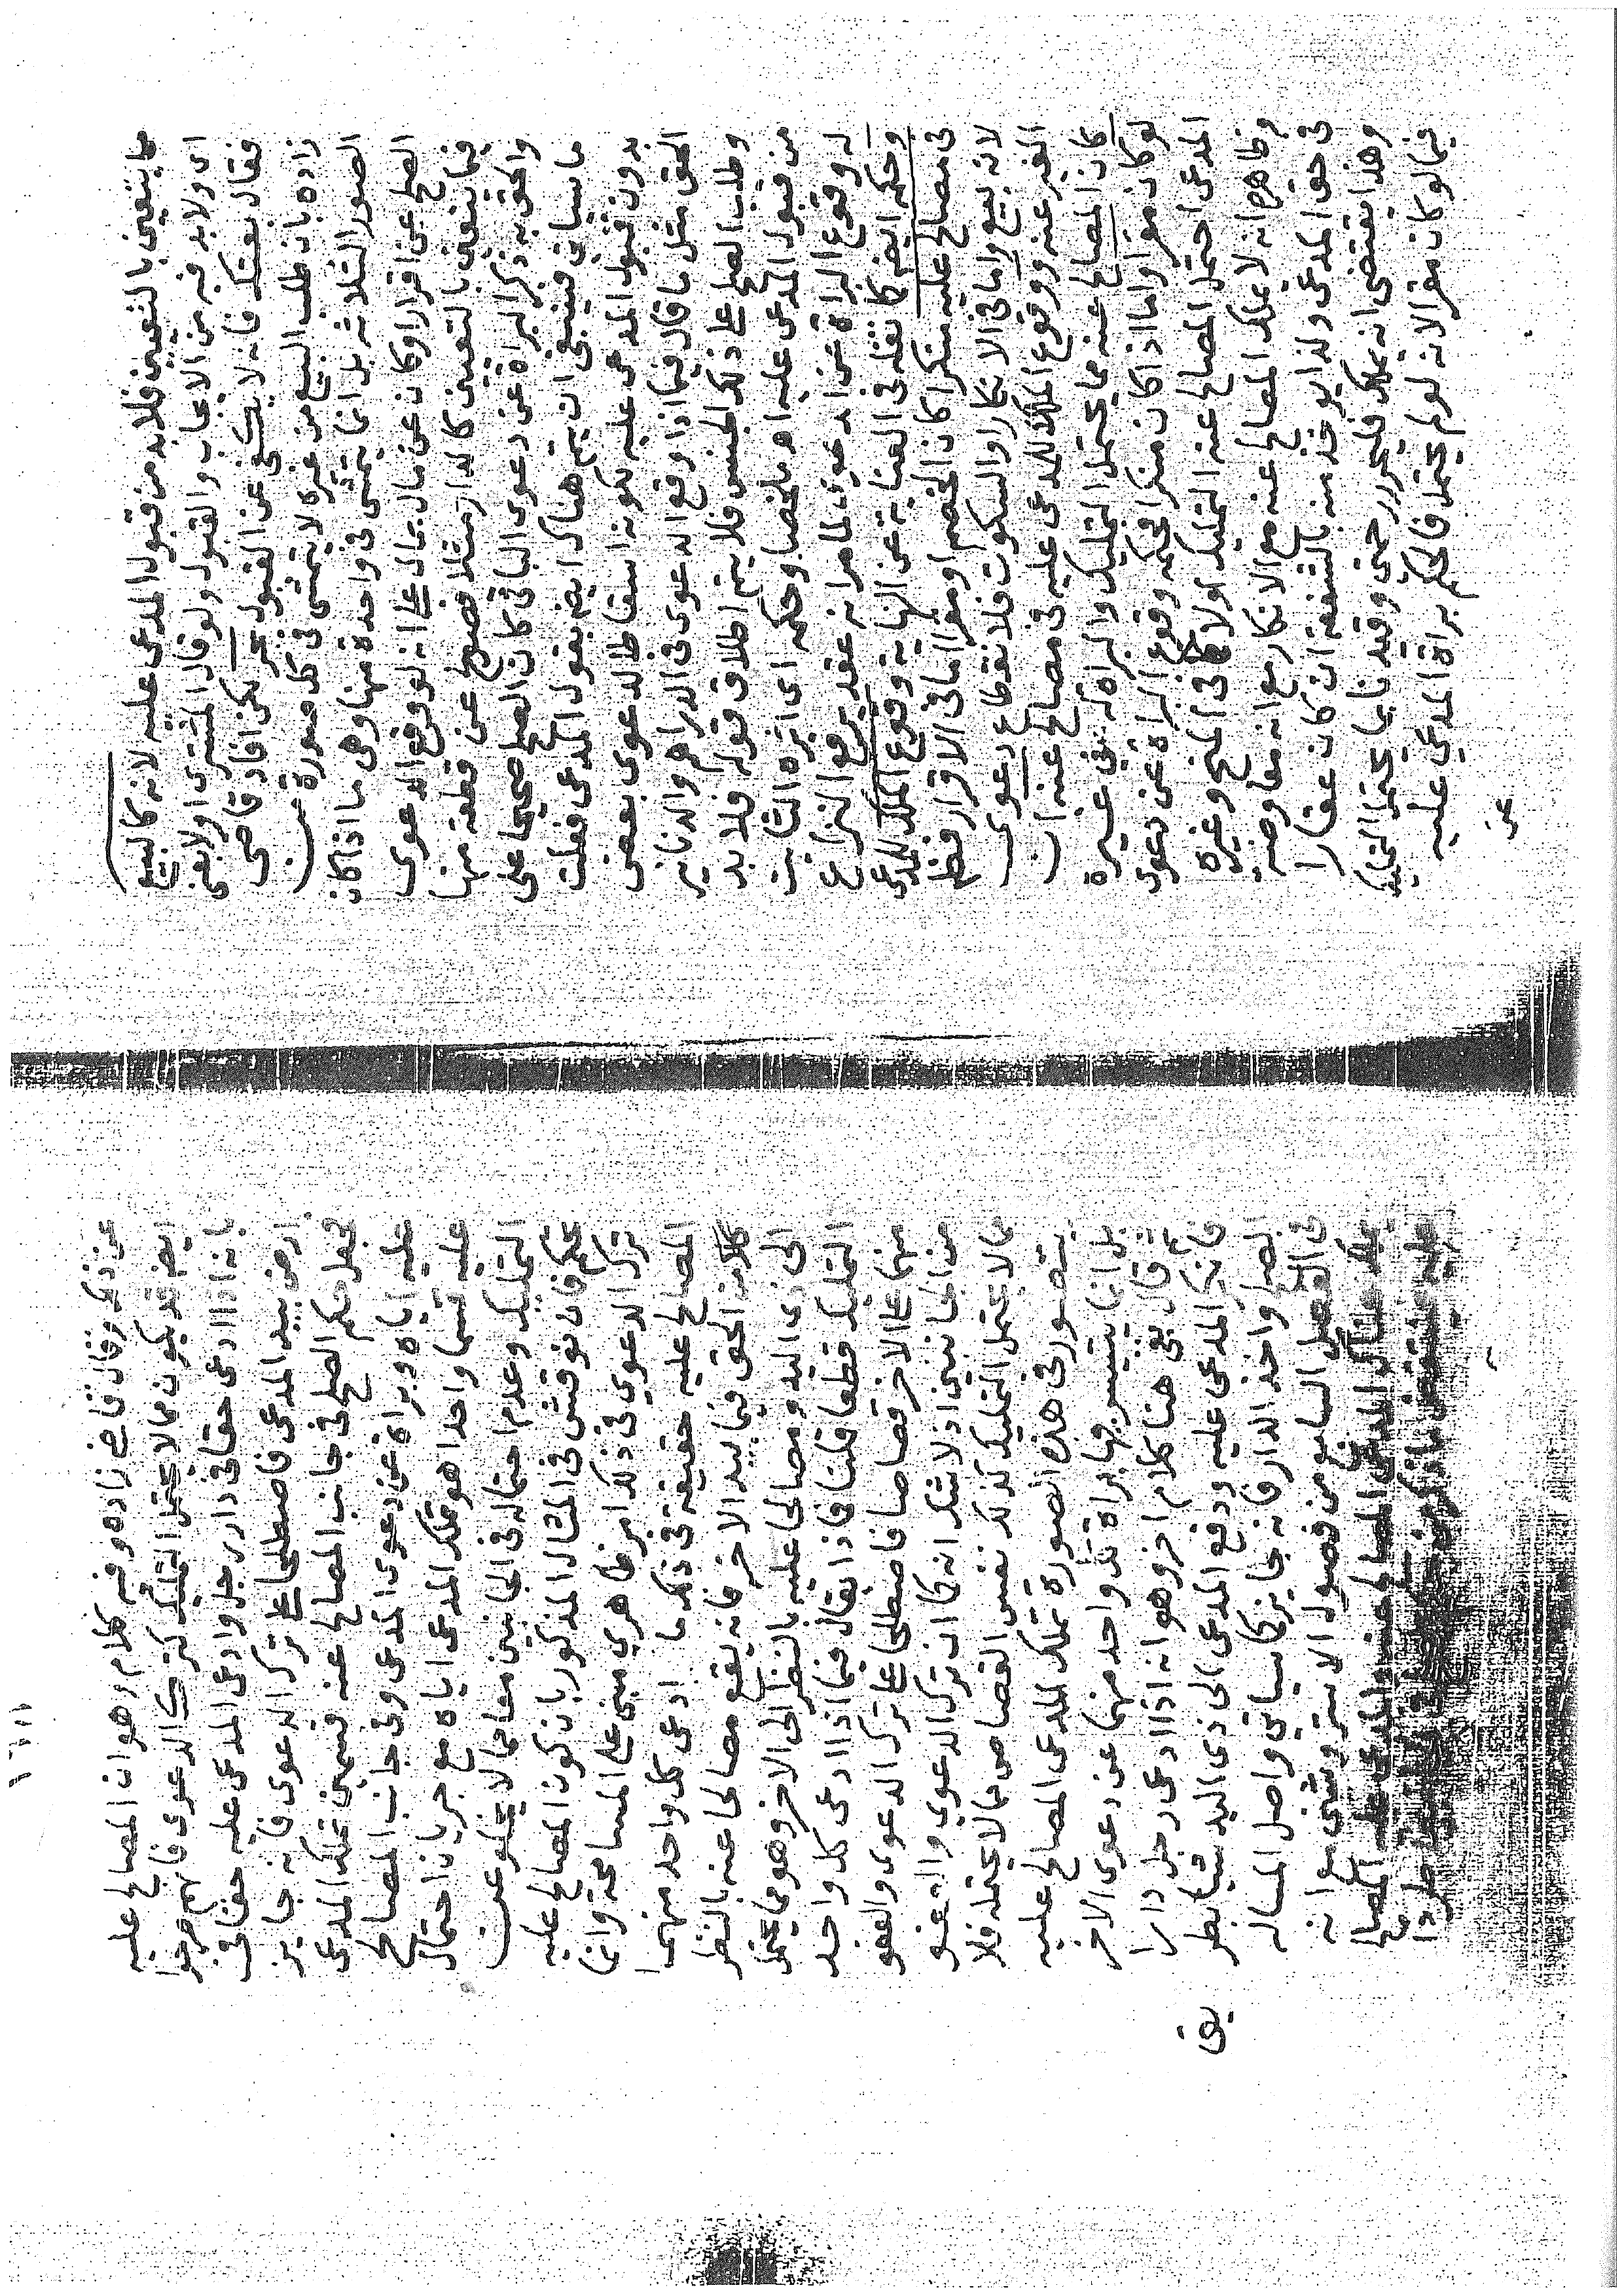 مما يتعين بالتعيين فلا بد من قبول المدعى عليه لانه كالبيع
اى ولا بد فيه من الايجاب والقبول ولو قال المشترى اولا بعنى
فقال بعتك فانه لا يكفى عن القبول بحر لكن افاد قاضى
زاده بان طلب البيع من غيره لا يتمشى فى كل صورة من
الصور الثلاثة بل انما يتمشى فى واحدة منها وهى ما اذا كان
الصلح عن اقرار وكان عن مال بمال على انه لو وقع الدعوى
فيما يتعين بالتعيين كالدار مثلا فصولح عن قطعة منها
والحق به ذكر البراة عن دعوى الباقى كان الصلح صحيحا على
ما سياتى فينبغى ان يتم هناك ايضا بقول المدعى فعلت
بدون قبول المدعى عليه لكونه اسقاطا لدعوى بعض
الحق مثل ما قال فيما اذا وقع الدعوى فى الدراهم والدنانير
وطلب الصلح على ذلك الجنس فلا يتم اطلاق قوله فلا بد
من قبول المدعى عليه اه ملخصا وحكمه اى اثره الثابت
له وقوع البراة عن الدعوى لما مر انه عقد يرفع النزاع
وحكمه ايضا كما نقله فى العناية عن النهاية وقوع الملك للمدعى
فى مصالح عليه منكرا كان الخصم او مقرا اما فى الاقرار فظ
لانه بيع واما فى الانكار والسكوت فلانقطاع دعوى
الغير عنه ووقوع الملك للمدعى عليه فى مصالح عنه ان
كان المصالح عنه مما يحتمل التمليك والبراة له فى غيره
لو كان مقرا واما اذا كان منكرا فحكمه وقوع البراة عن دعوى
المدعى احتمل المصالح عنه التمليك او لا كما فى المنح وغيره
وظاهره انه لا يملك المصالح عنه مع الانكار مع انه معاوضه
فى حق المدعى ولذا يوخذ منه بالشفعة ان كان عقارا
وهذا يقتضى انه يملك فليحرر حتى وقيدنا بما يحتمل التمليك
فيما لو كان مقرا لانه لو لم يحتمل فالحكم براة المدعى عليه
عن
عن ذكره وقال قاضى زاده وفيه كلام وهو ان المصالح عليه
ايضا قد يكون مما لا يحتمل التمليك كترك الدعوى فانهم صرحوا
بانه اذا ادعى حقا فى دار رجل وادعى المدعى عليه حقا فى
ارض بيد المدعى فاصطلحا على ترك الدعوى فانه جايز
فجعل حكم الصلح فى جانب المصالح عنه قسمين تملك المدعى
عليه اياه وبراة عن دعوى المدعى وفى جانب المصالح
عليه قسما واحدا هو تملك المدعى اياه مع جريان احتمال
التمليك وعدم احتماله فى الجانبين معا مما لا يخلو عن
تحكم فان نوقش فى المثال المذكور بان كون المصالح عليه
ترك الدعوى فى ذلك امر ظاهرى مبنى على المسامحة وانما
المصالح عليه حقيقة فى ذلك ما ادعى كل واحد منهما
كلان الحق فيما بيد الاخر فانه يقع مصالحا عنه بالنظر
الى ذى اليد ومصالحا عليه بالنظر الى الاخر وهو مما يحتمل
التمليك قطعا قلنا فماذا يقال فيما اذا ادعى كل واحد
منهما على الاخر قصاصا فاصطلحا على ترك الدعوى والعفو
من الجانبين اذ لا شك انه كما ان ترك الدعوى والعفو
مما لا يحتمل التمليك كذلك نفس القصاص مما لا يحتمله فلا
يتصور فى هذه الصورة تملك المدعى المصالح عليه
بل انما يتيسر فيها براة كل واحد منهما عن دعوى الاخر
ثم قال بقى هنا كلام اخر وهو انه اذا ادعى رجل دارا
فانكر المدعى عليه ودفع المدعى الى ذى اليد شيا بطريق
الصلح واخذ الدار فانه جايز كما سياتى واصل المساله
فى الفصل السابع من فصول الاستروشنى مع انه
بقى